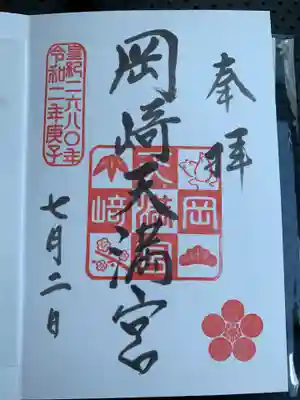 奉拝
岡崎天満宮
岡
天満宮
崎
皇紀二六八〇年
令和二年庚子
七月二日